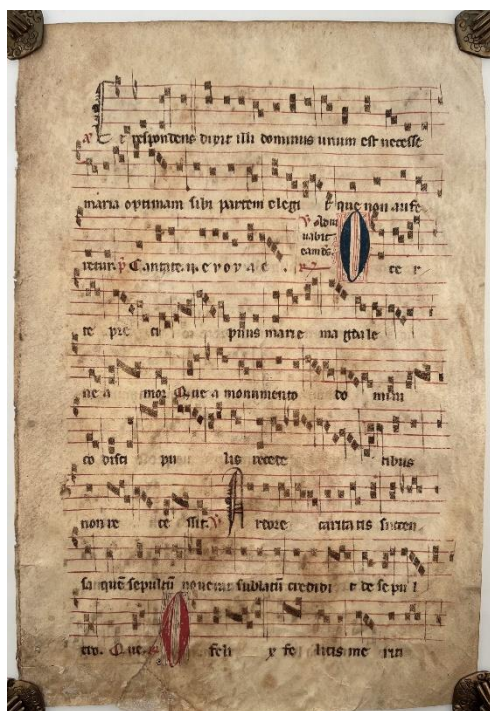 Et respondens dixit illi dominus unum est necesse
maria optimam sibi partem elegit que non aufe
retur. Cantate. ii. e v o v a e.
V Adiu
uabit
eam ds.
O ce r
te pre ci puus marie ma gdale
ne a mor Que a monumento do mini
co disci pu lis recede tibus
non re ce ssit. V A rdore caritatis succen
sa quē sepultū noverat sublatū credidi t de se pul
cro. Que. O feli x fe licis me riti